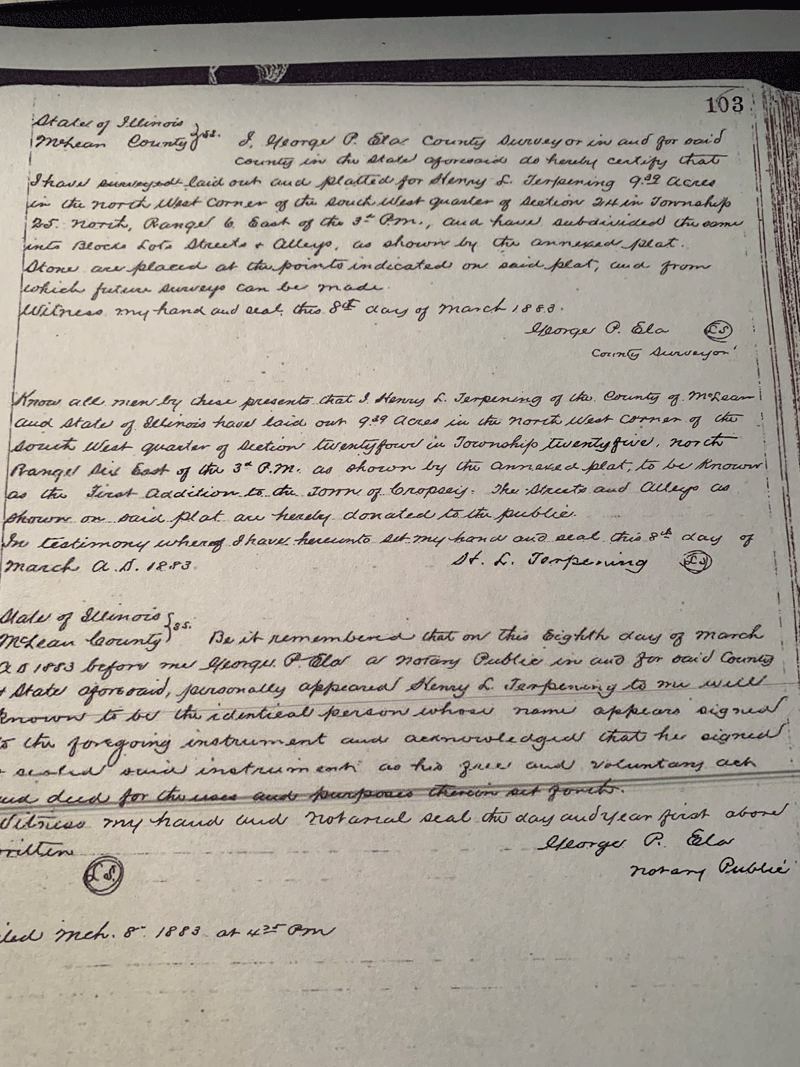 103
State of Illinois
McLean County } ss. I, George P. Ela County Surveyor in and for said
County in the State aforesaid do hereby certify that
I have surveyed laid out and platted for Henry L. Terpening 9.39 Acres
in the north West Corner of the South West quarter of Section 24 in Township
25 North, Range 6 East of the 3rd P.M., and have subdivided the same
into Blocks Lots Streets & Alleys, as shown by the annexed plat.
Stone are placed at the points indicated on said plat, and from
which future surveys can be made.
Witness my hand and seal, this 8th day of March 1883.
George P. Ela L S
County Surveyor
Know all men by these presents that I Henry L. Terpening of the County of McLean
and State of Illinois have laid out 9.39 Acres in the North West Corner of the
South West quarter of Section twentyfour in Township twentyfive, north
Range Six East of the 3rd P.M. as shown by the annexed plat, to be Known
as the First Addition to the Town of Cropsey. The Streets and Alleys as
shown on said plat are hereby donated to the public.
In testimony whereof I have hereunto set my hand and seal this 8th day of
March A.D. 1883. H. L. Terpening L S
State of Illinois
McLean County } ss. Be it remembered that on this Eighth day of March
A D 1883 before me George. P. Ela a Notary Public in and for said County
& State aforesaid, personally appeared Henry L. Terpening to me well
known to be the identical person whose name appears signed
to the foregoing instrument and acknowledged that he signed
& sealed said instrument as his free and voluntary act
and deed for the uses and purposes therein set forth.
Witness my hand and Notarial seal the day and year first above
written George P. Ela
L. S. Notary Public
Filed Mch. 8th 1883 at 4 25 PM